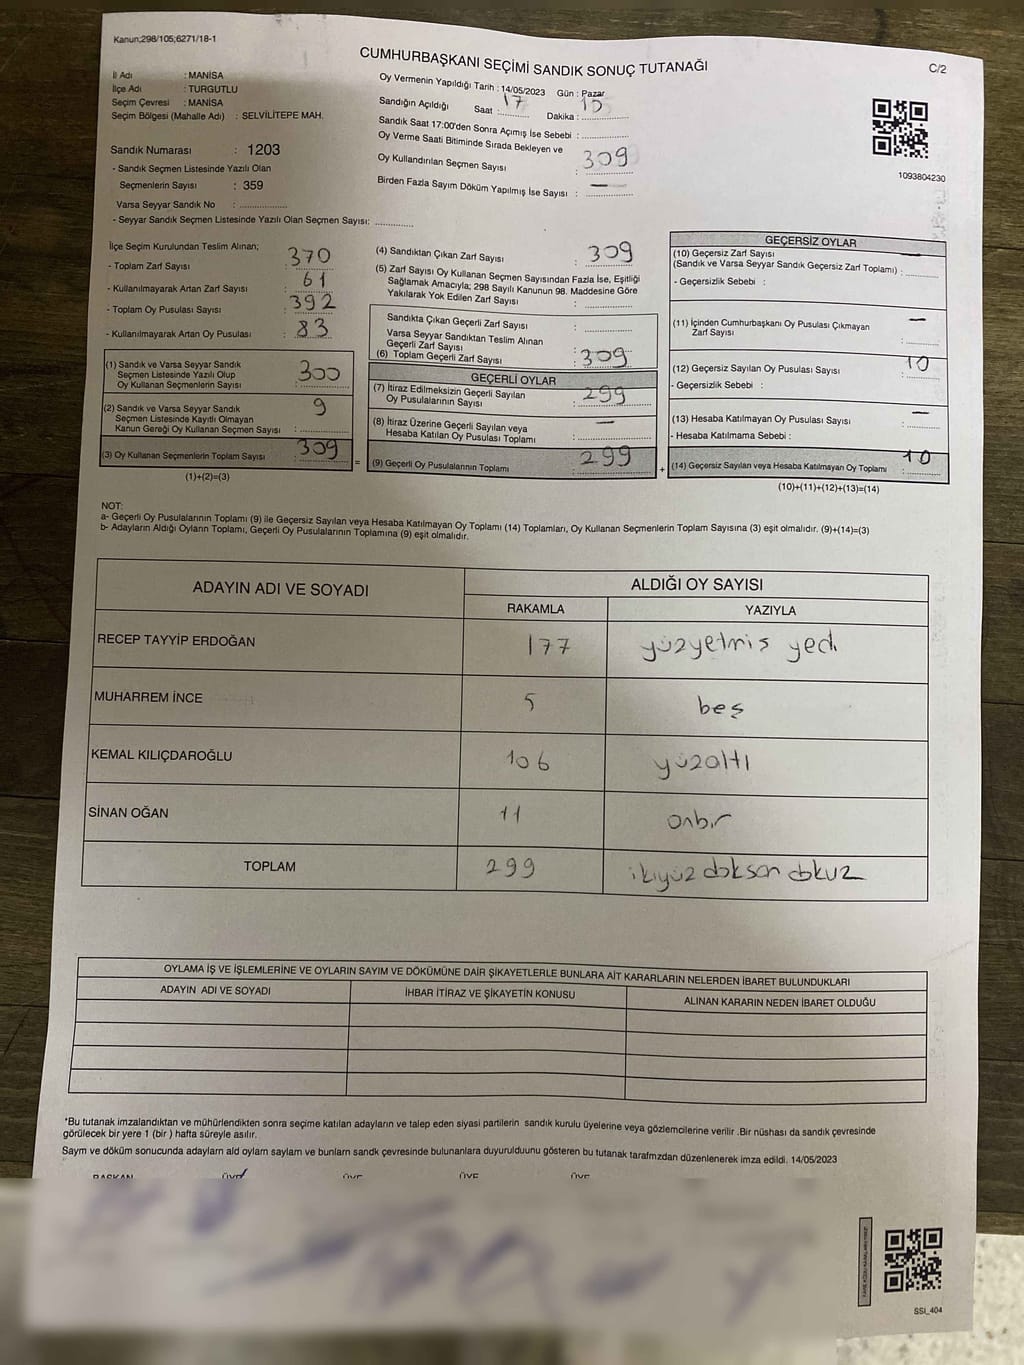 Kanun;298/105;6271/18-1
CUMHURBAŞKANI SEÇİMİ SANDIK SONUÇ TUTANAĞI
C/2
İl Adı : MANİSA
İlçe Adı : TURGUTLU
Seçim Çevresi : MANİSA
Seçim Bölgesi (Mahalle Adı) : SELVİLİTEPE MAH.
Sandık Numarası : 1203
- Sandık Seçmen Listesinde Yazılı Olan
Seçmenlerin Sayısı : 359
Varsa Seyyar Sandık No : ................
- Seyyar Sandık Seçmen Listesinde Yazılı Olan Seçmen Sayısı: .............
Oy Vermenin Yapıldığı Tarih : 14/05/2023 Gün : Pazar
Sandığın Açıldığı Saat : 17 Dakika : 15
Sandık Saat 17:00'den Sonra Açımış İse Sebebi : ................
Oy Verme Saati Bitiminde Sırada Bekleyen ve
Oy Kullandırılan Seçmen Sayısı : 309
Birden Fazla Sayım Döküm Yapılmış İse Sayısı : —
1093804230
İlçe Seçim Kurulundan Teslim Alınan;
- Toplam Zarf Sayısı : 370
- Kullanılmayarak Artan Zarf Sayısı : 61
- Toplam Oy Pusulası Sayısı : 392
- Kullanılmayarak Artan Oy Pusulası : 83
(1) Sandık ve Varsa Seyyar Sandık
Seçmen Listesinde Yazılı Olup
Oy Kullanan Seçmenlerin Sayısı : 300
(2) Sandık ve Varsa Seyyar Sandık
Seçmen Listesinde Kayıtlı Olmayan
Kanun Gereği Oy Kullanan Seçmen Sayısı : 9
(3) Oy Kullanan Seçmenlerin Toplam Sayısı : 309
(1)+(2)=(3)
(4) Sandıktan Çıkan Zarf Sayısı : 309
(5) Zarf Sayısı Oy Kullanan Seçmen Sayısından Fazla İse, Eşitliği
Sağlamak Amacıyla; 298 Sayılı Kanunun 98. Maddesine Göre
Yakılarak Yok Edilen Zarf Sayısı : ................
Sandıkta Çıkan Geçerli Zarf Sayısı : ................
Varsa Seyyar Sandıktan Teslim Alınan
Geçerli Zarf Sayısı
(6) Toplam Geçerli Zarf Sayısı : 309
GEÇERLİ OYLAR
(7) İtiraz Edilmeksizin Geçerli Sayılan
Oy Pusulalarının Sayısı : 299
(8) İtiraz Üzerine Geçerli Sayılan veya
Hesaba Katılan Oy Pusulası Toplamı : —
= (9) Geçerli Oy Pusulalarının Toplamı : 299
GEÇERSİZ OYLAR
(10) Geçersiz Zarf Sayısı
(Sandık ve Varsa Seyyar Sandık Geçersiz Zarf Toplamı) : —
- Geçersizlik Sebebi :
(11) İçinden Cumhurbaşkanı Oy Pusulası Çıkmayan
Zarf Sayısı : —
(12) Geçersiz Sayılan Oy Pusulası Sayısı : 10
- Geçersizlik Sebebi :
(13) Hesaba Katılmayan Oy Pusulası Sayısı : —
- Hesaba Katılmama Sebebi :
+ (14) Geçersiz Sayılan veya Hesaba Katılmayan Oy Toplamı : 10
(10)+(11)+(12)+(13)=(14)
NOT:
a- Geçerli Oy Pusulalarının Toplamı (9) ile Geçersiz Sayılan veya Hesaba Katılmayan Oy Toplamı (14) Toplamları, Oy Kullanan Seçmenlerin Toplam Sayısına (3) eşit olmalıdır. (9)+(14)=(3)
b- Adayların Aldığı Oyların Toplamı, Geçerli Oy Pusulalarının Toplamına (9) eşit olmalıdır.
ADAYIN ADI VE SOYADI
ALDIĞI OY SAYISI
RAKAMLA YAZIYLA
RECEP TAYYİP ERDOĞAN 177 yüzyetmiş yedi
MUHARREM İNCE 5 beş
KEMAL KILIÇDAROĞLU 106 yüzaltı
SİNAN OĞAN 11 onbir
TOPLAM 299 ikiyüz doksan dokuz
OYLAMA İŞ VE İŞLEMLERİNE VE OYLARIN SAYIM VE DÖKÜMÜNE DAİR ŞİKAYETLERLE BUNLARA AİT KARARLARIN NELERDEN İBARET BULUNDUKLARI
ADAYIN ADI VE SOYADI İHBAR İTİRAZ VE ŞİKAYETİN KONUSU ALINAN KARARIN NEDEN İBARET OLDUĞU
*Bu tutanak imzalandıktan ve mühürlendikten sonra seçime katılan adayların ve talep eden siyasi partilerin sandık kurulu üyelerine veya gözlemcilerine verilir .Bir nüshası da sandık çevresinde
görülecek bir yere 1 (bir ) hafta süreyle asılır.
Saym ve döküm sonucunda adaylarn ald oylam saylam ve bunlarn sandk çevresinde bulunanlara duyurulduunu gösteren bu tutanak tarafmzdan düzenlenerek imza edildi. 14/05/2023
BAŞKAN ÜYE ÜYE ÜYE ÜYE
SSI_404